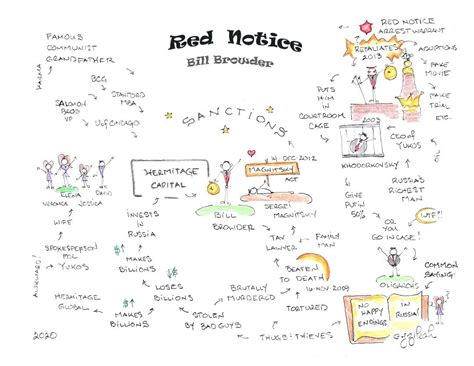 Red Notice
Bill Browder
SANCTIONS
FAMOUS
COMMUNIST
GRANDFATHER
BCG
STANFORD
MBA
SALOMON
BROS
VP
U of CHICAGO
VERONICA
JESSICA
DAVID
WIFE
SPOKESPERSON
FOR
YUKOS
AWKWARD!
HERMITAGE
GLOBAL
2020
HERMITAGE
CAPITAL
INVESTS
IN
RUSSIA
$
MAKES
BILLIONS
$
LOSES
BILLIONS
$
MAKES
BILLIONS
STOLEN
BY BAD GUYS
BILL
BROWDER
14 DEC 2012
MAGNITSKY
ACT
SERGEI
MAGNITSKY
TAX
LAWYER
FAMILY
MAN
BEATEN
TO DEATH
16-NOV-2009
BRUTALLY
MURDERED
TORTURED
THUGS! THIEVES
RED NOTICE
ARREST WARRANT
RETALIATES
2013
ADOPTIONS
FAKE
MOVIE
FAKE
TRIAL
ETC.
PUTS
HIM IN
COURTROOM
CAGE
2003
CEO of
YUKOS
KHODORKOVSKY
RUSSIA'S
RICHEST
MAN
GIVE
PUTIN
50%
OR
YOU
GO IN CAGE!
WTF?!
OLIGARCHS
COMMON
SAYING:
NO
HAPPY
ENDINGS
IN
RUSSIA!